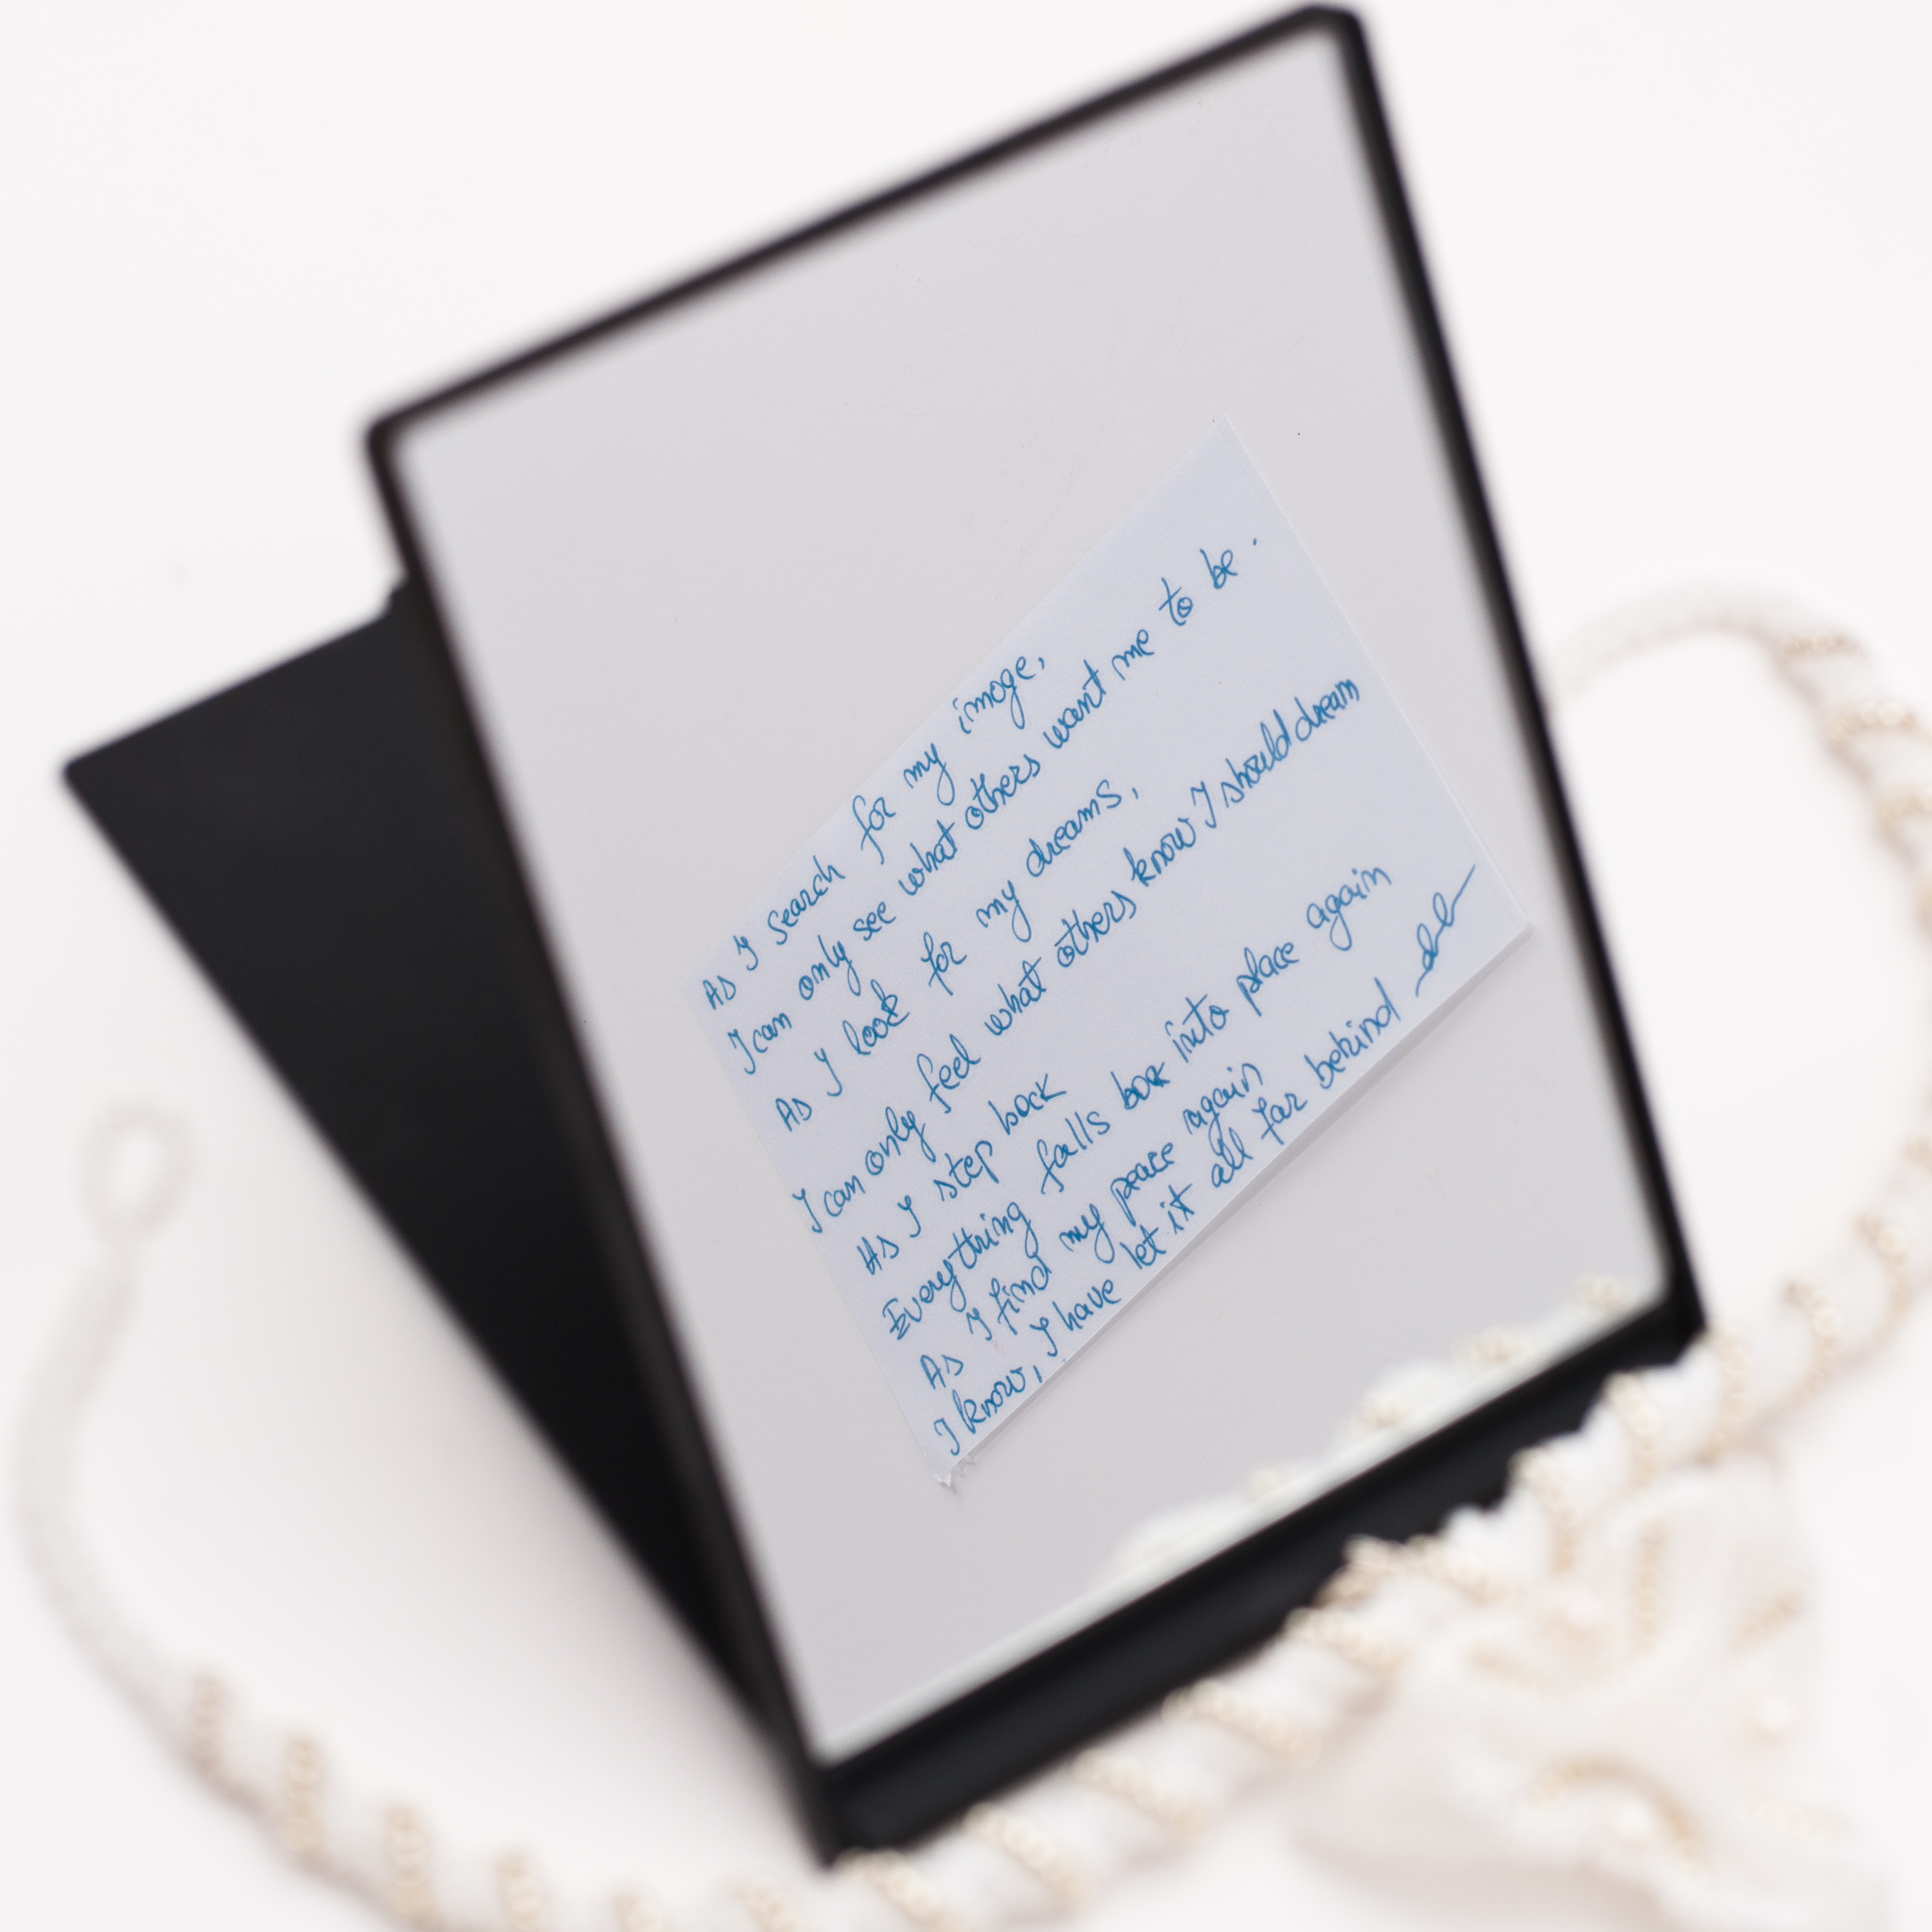 As I search for my image,
I can only see what others want me to be.
As I look for my dreams,
I can only feel what others know I should dream
As I step back
Everything falls back into place again
As I find my peace again
I know, I have let it all far behind